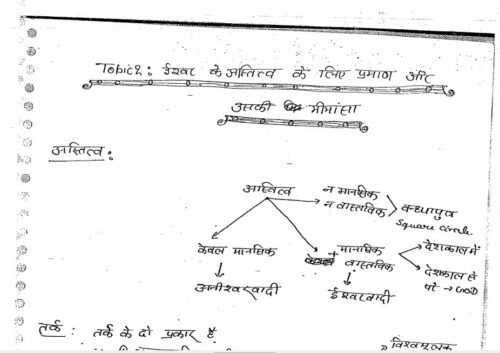 Topic 2: ईश्वर के अस्तित्व के लिए प्रमाण और
उसकी मीमांसा
अस्तित्व:
अस्तित्व न मानसिक
न वास्तविक बन्ध्यापुत्र
Square Circle
केवल मानसिक मानसिक देशकाल में
+ वास्तविक
अनीश्वरवादी ईश्वरवादी देशकाल से
परे → GOD
तर्क: तर्क के दो प्रकार हैं
विश्वमूलक